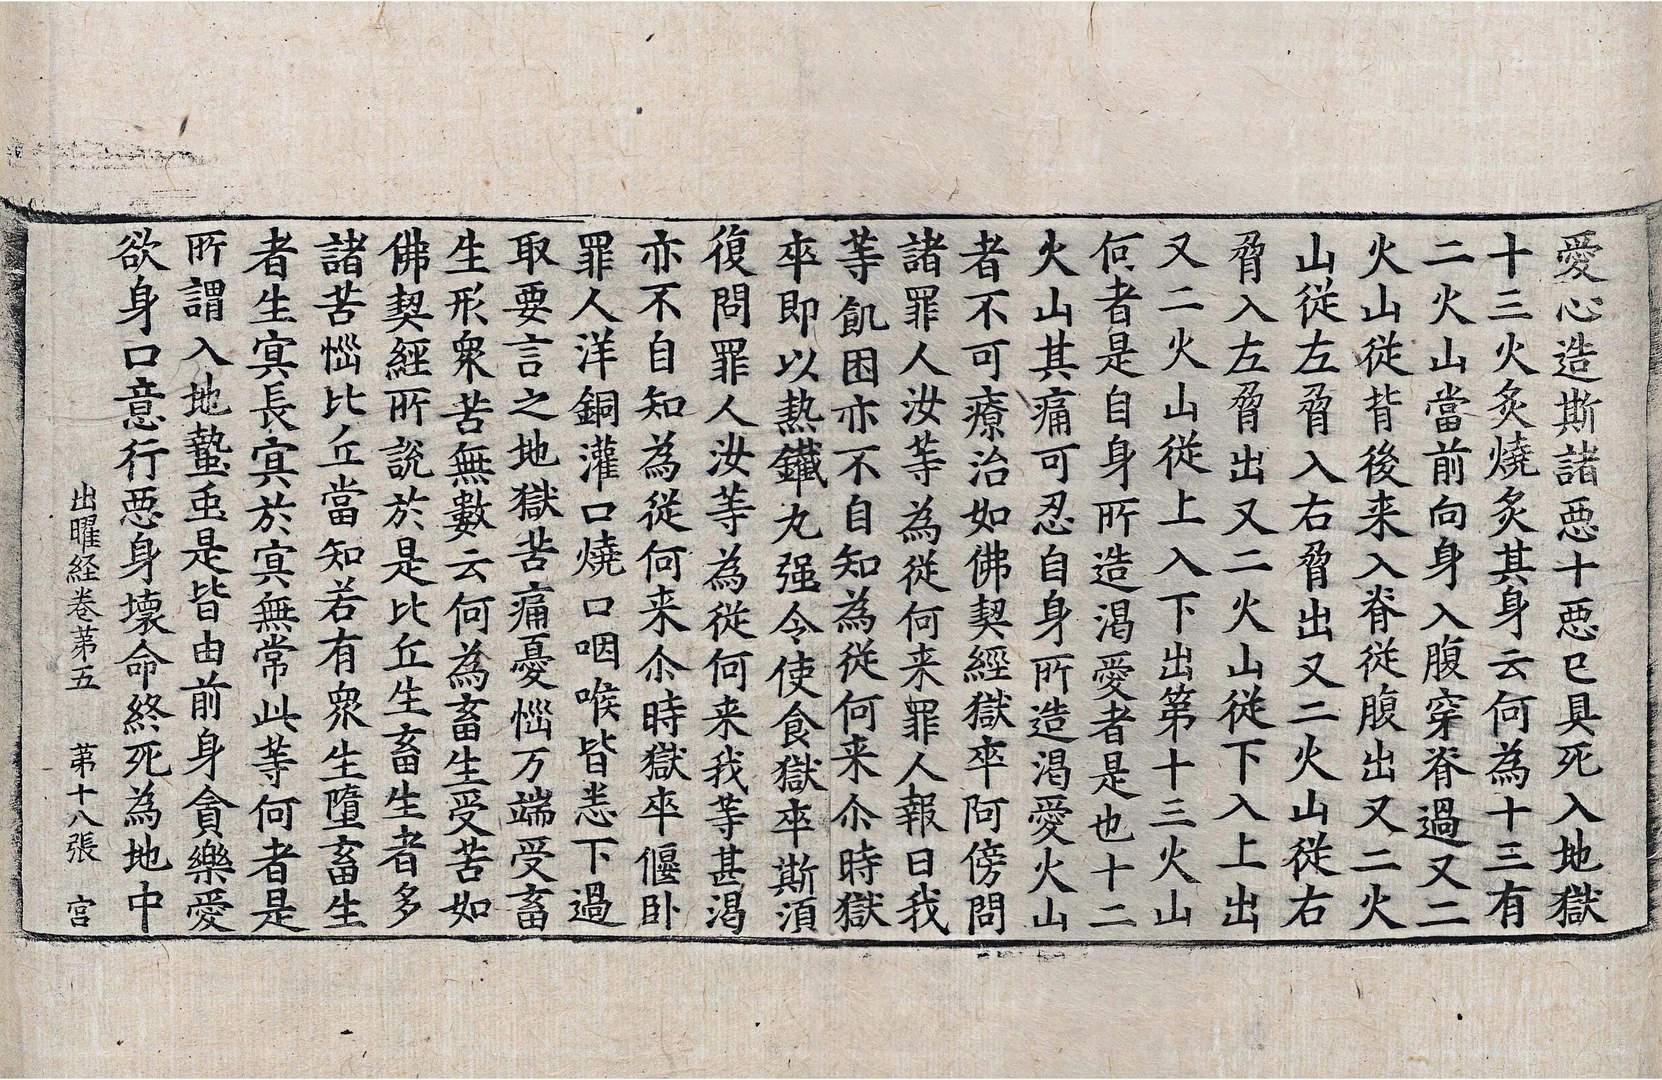 愛心造斯諸惡十惡已具死入地獄
十三火炙燒炙其身云何為十三有
二火山當前向身入腹穿脊過又二
火山從背後来入脊從腹出又二火
山從左脅入右脅出又二火山從右
脅入左脅出又二火山從下入上出
又二火山從上入下出第十三火山
何者是自身所造渴愛者是也十二
火山其痛可忍自身所造渴愛火山
者不可療治如佛契經獄卒阿傍問
諸罪人汝等為從何来罪人報曰我
等飢困亦不自知為從何来尒時獄
卒即以熱鐵丸强令使食獄卒斯須
復問罪人汝等為從何来我等甚渴
亦不自知為從何来尒時獄卒偃卧
罪人洋銅灌口燒口咽喉皆恙下過
取要言之地獄苦痛憂惱万端受畜
生形衆苦無數云何為畜生受苦如
佛契經所說於是比丘生畜生者多
諸苦惱比丘當知若有衆生墮畜生
者生㝠長㝠於㝠無常此等何者是
所謂入地蟄䖝是皆由前身貪樂愛
欲身口意行惡身壞命終死為地中
出曜経卷第五 第十八張 宮